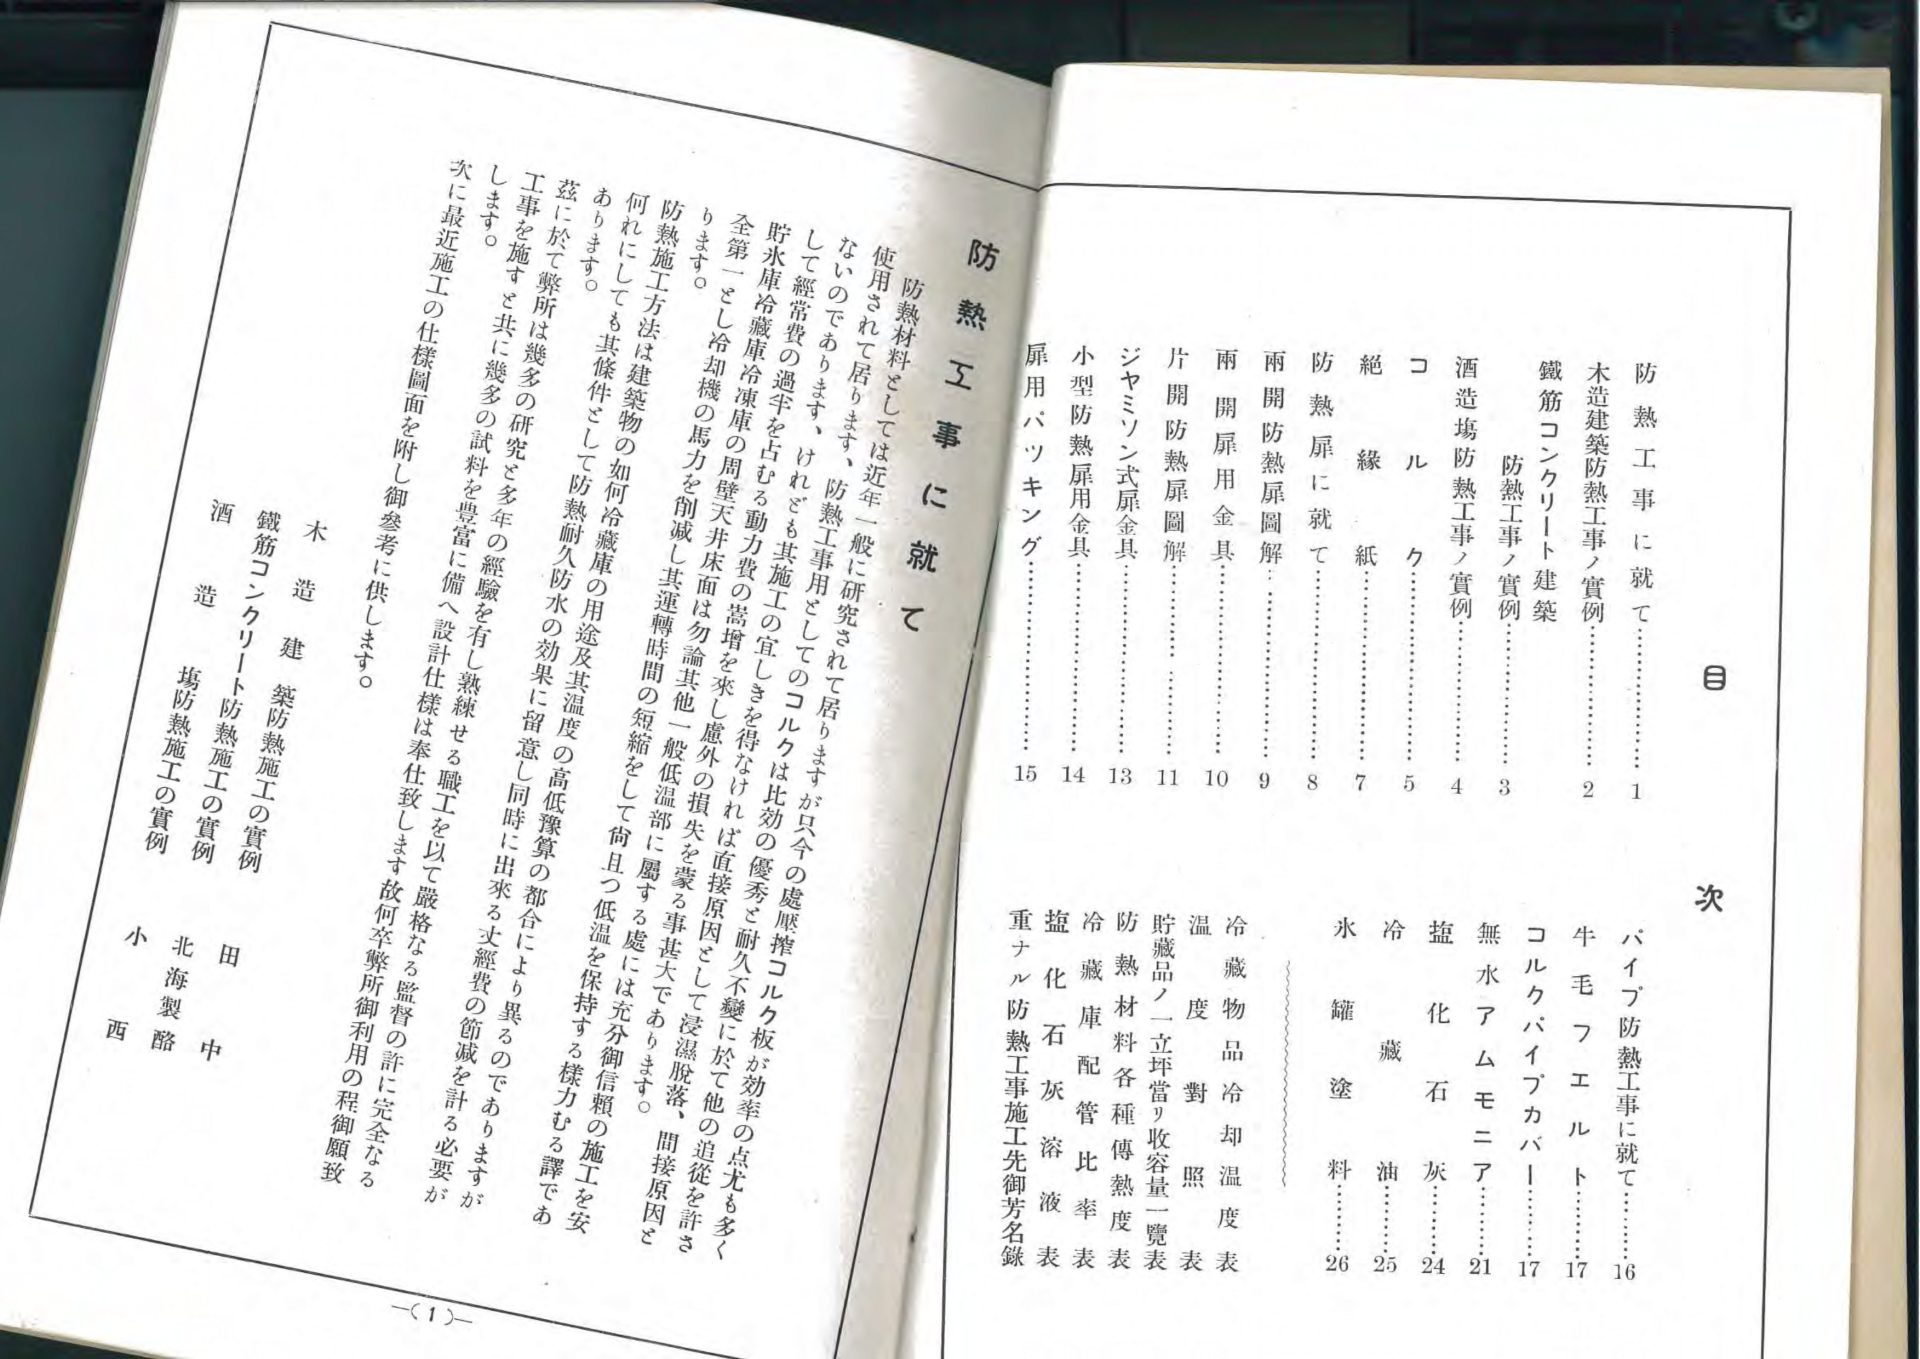 目次
防熱工事に就て……………1
木造建築防熱工事ノ實例……………2
鐵筋コンクリート建築
防熱工事ノ實例……………3
酒造塲防熱工事ノ實例……………4
コルク……………5
絕緣紙……………7
防熱扉に就て……………8
兩開防熱扉圖解……………9
兩開扉用金具……………10
片開防熱扉圖解……………11
ジヤミソン式扉金具……………13
小型防熱扉用金具……………14
扉用パツキング……………15
パイプ防熱工事に就て………16
牛毛フエルト………17
コルクパイプカバー………17
無水アムモニア………21
塩化石灰………24
冷藏油………25
氷罐塗料………26
冷藏物品冷却温度表
温度對照表
貯藏品ノ一立坪當リ收容量一覽表
防熱材料各種傳熱度表
冷藏庫配管比率表
塩化石灰溶液表
重ナル防熱工事施工先御芳名錄
防熱工事に就て
防熱材料としては近年一般に研究されて居りますが只今の處壓搾コルク板が効率の点尤も多く
使用されて居ります、防熱工事用としてのコルクは比効の優秀と耐久不變に於て他の追從を許さ
ないのであります、けれども其施工の宜しきを得なければ直接原因として浸濕脫落、間接原因と
して經常費の過半を占むる動力費の嵩增を來し慮外の損失を蒙る事甚大であります。
貯氷庫冷藏庫冷凍庫の周壁天井床面は勿論其他一般低温部に屬する處には充分御信賴の施工を安
全第一とし冷却機の馬力を削減し其運轉時間の短縮をして尙且つ低温を保持する樣力むる譯であ
ります。
防熱施工方法は建築物の如何冷藏庫の用途及其温度の高低豫算の都合により異るのでありますが
何れにしても其條件として防熱耐久防水の効果に留意し同時に出來る丈經費の節減を計る必要が
あります。
茲に於て弊所は幾多の研究と多年の經驗を有し熟練せる職工を以て嚴格なる監督の許に完全なる
工事を施すと共に幾多の試料を豊富に備へ設計仕樣は奉仕致します故何卒弊所御利用の程御願致
します。
次に最近施工の仕樣圖面を附し御參考に供します。
木造建築防熱施工の實例 田中
鐵筋コンクリート防熱施工の實例 北海製酪
酒造塲防熱施工の實例 小西
—(1)—